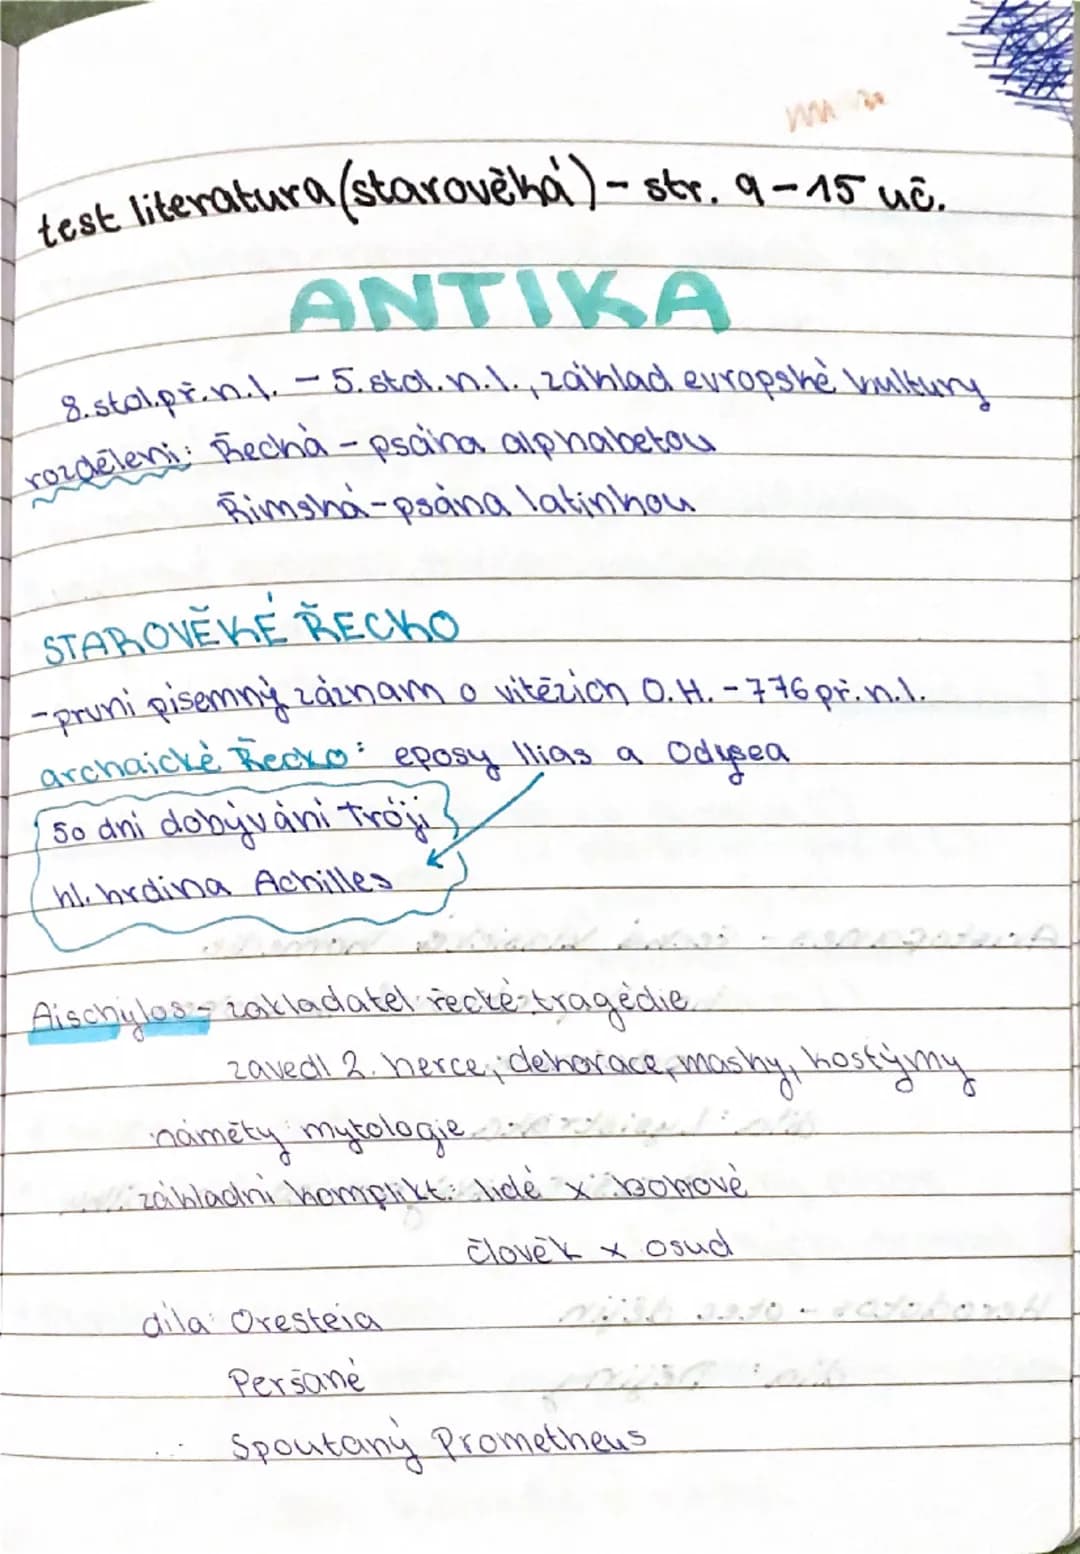 test literatura (starověká) - str. 9-15 uč.
ANTIKA
8. stol. př. n. l. - 5. stol. n. l., základ evropské kultury
rozdělení: Řecká - psána alphabetou
Římská - psána latinkou
STAROVĚKÉ ŘECKO
- první písemný záznam o vítězích O.H. - 776 př. n. l.
archaické Řecko: eposy Ilias a Odysea
50 dní dobývání Tróji
hl. hrdina Achilles
Aischylos - zakladatel řecké tragédie
zavedl 2. herce, dekorace, masky, kostýmy
náměty mytologie
základní komplikt: lidé x bohové
člověk x osud
díla: Oresteia
Peršané
Spoutaný Prometheus